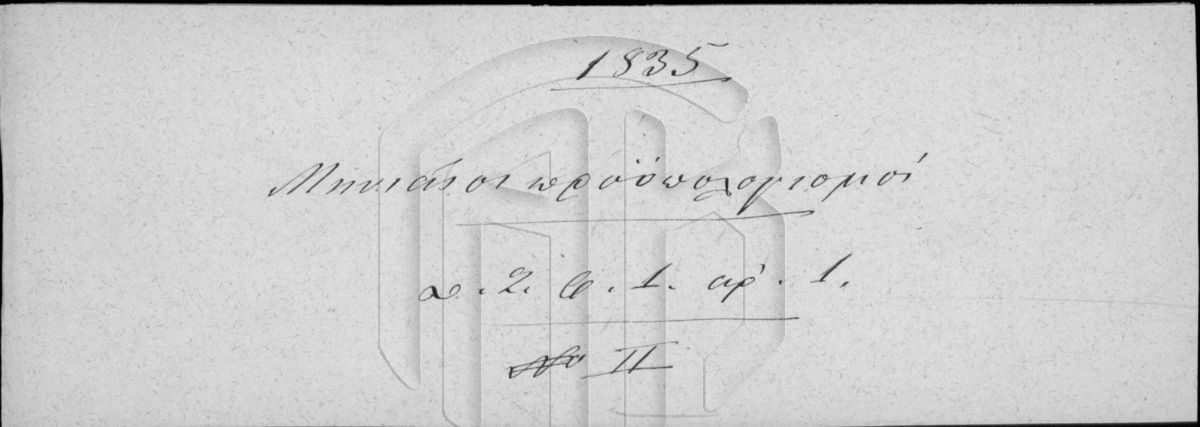 1835
Μηνιαῖοι προϋπολογισμοί
α. 2. φ. 1. αρ. 1.
No II